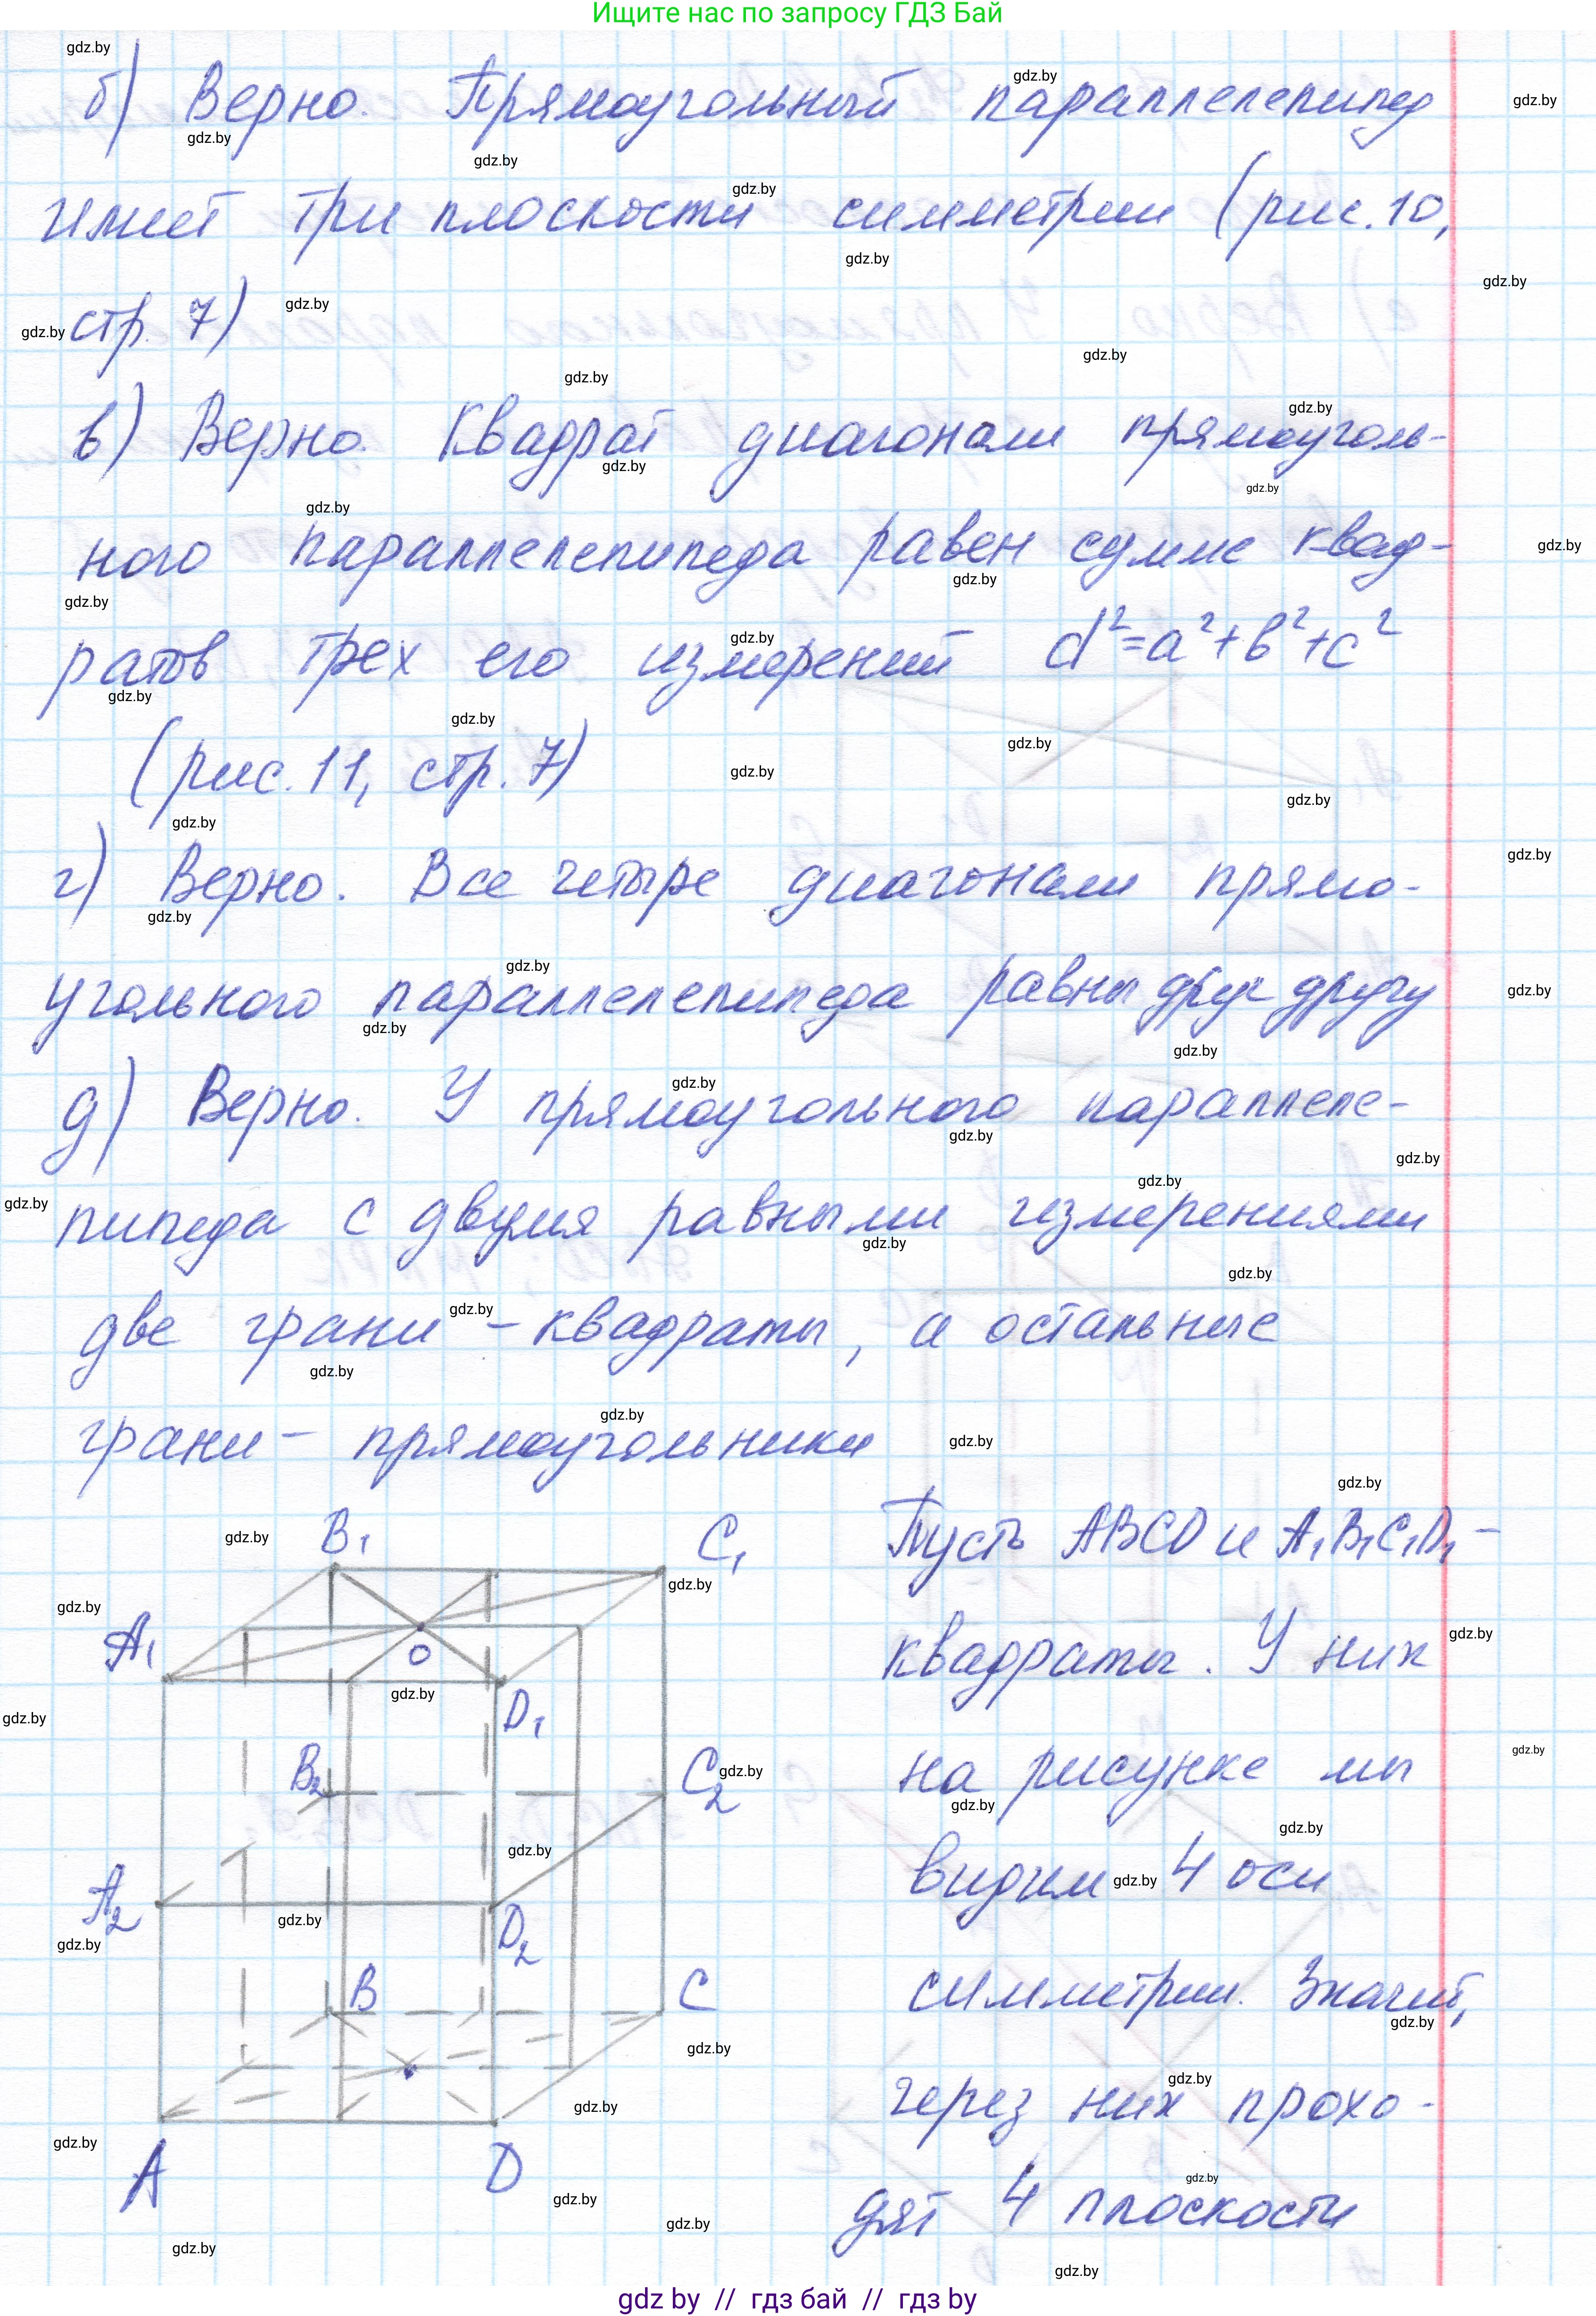 Ищите нас по запросу ГДЗ Бай
б) Верно. Прямоугольный параллелепипед
имеет три плоскости симметрии (рис. 10,
стр. 7)
в) Верно. Квадрат диагонали прямоуголь-
ного параллелепипеда равен сумме квад-
ратов трех его измерений d²=a²+b²+c²
(рис. 11, стр. 7)
г) Верно. Все четыре диагонали прямо-
угольного параллелепипеда равны друг другу
д) Верно. У прямоугольного параллеле-
пипеда с двумя равными измерениями
две грани - квадраты, а остальные
грани - прямоугольники
B₁ C₁
A₁
O
D₁
B₂ C₂
A₂
D₂
B C
A D
Пусть ABCD и A₁B₁C₁D₁ -
квадраты. У них
на рисунке мы
видим 4 оси
симметрии. Значит,
через них прохо-
дят 4 плоскости
gdz by // гдз бай // гдз by